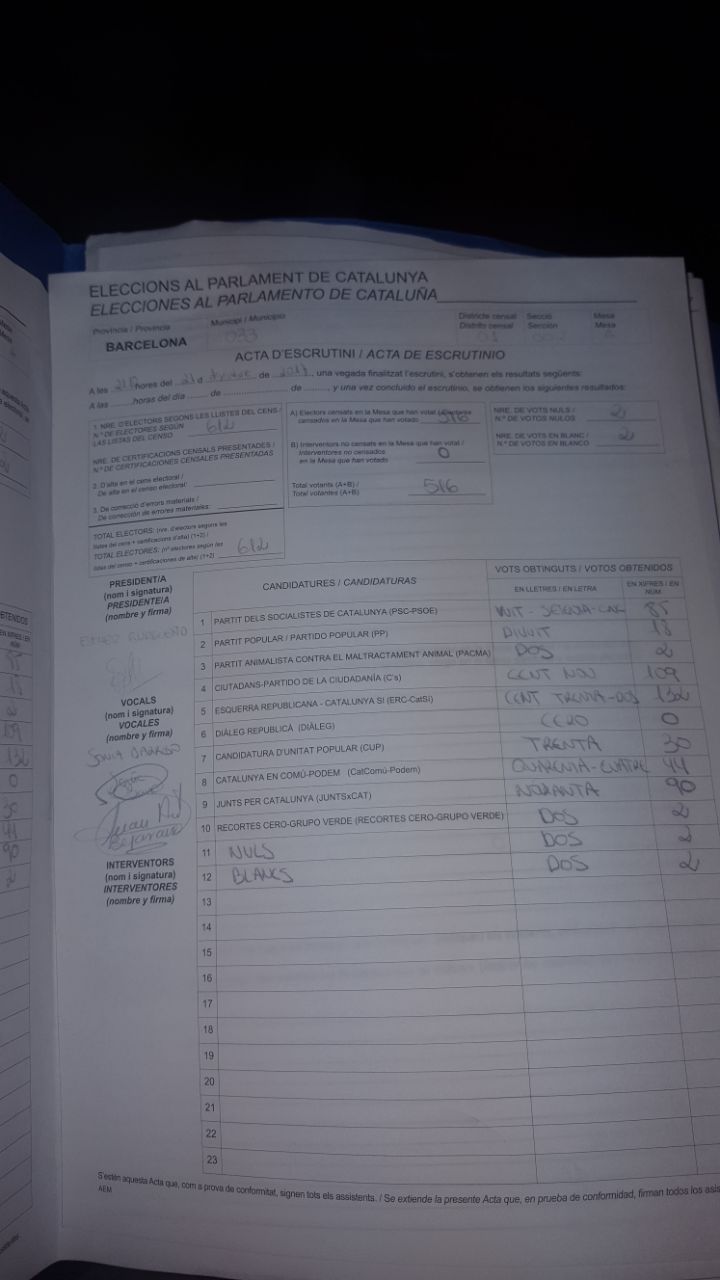 ELECCIONS AL PARLAMENT DE CATALUNYA
ELECCIONES AL PARLAMENTO DE CATALUÑA
Província / Provincia
Municipi / Municipio
Districte censal
Distrito censal
Secció
Sección
Mesa
Mesa
BARCELONA
033
01
ACTA D'ESCRUTINI / ACTA DE ESCRUTINIO
A les hores del 21 de de 2017, una vegada finalitzat l'escrutini, s'obtenen els resultats següents:
A las horas del día de de , y una vez concluido el escrutinio, se obtienen los siguientes resultados:
1. NRE. D'ELECTORS SEGONS LES LLISTES DEL CENS /
N.º DE ELECTORES SEGÚN
LAS LISTAS DEL CENSO 612
NRE. DE CERTIFICACIONS CENSALS PRESENTADES /
N.º DE CERTIFICACIONES CENSALES PRESENTADAS
2. D'alta en el cens electoral /
De alta en el censo electoral:
3. De correcció d'errors materials /
De corrección de errores materiales:
TOTAL ELECTORS: (nre. d'electors segons les
llistes del cens + certificacions d'alta) (1+2) /
TOTAL ELECTORES: (nº electores según las
listas del censo + certificaciones de alta) (1+2) 612
A) Electors censats en la Mesa que han votat / Electores
censados en la Mesa que han votado 516
B) Interventors no censats en la Mesa que han votat /
Interventores no censados
en la Mesa que han votado 0
Total votants (A+B) /
Total votantes (A+B) 516
NRE. DE VOTS NULS /
N.º DE VOTOS NULOS 2
NRE. DE VOTS EN BLANC /
N.º DE VOTOS EN BLANCO 2
PRESIDENT/A
(nom i signatura)
PRESIDENTE/A
(nombre y firma)
VOCALS
(nom i signatura)
VOCALES
(nombre y firma)
INTERVENTORS
(nom i signatura)
INTERVENTORES
(nombre y firma)
CANDIDATURES / CANDIDATURAS
VOTS OBTINGUTS / VOTOS OBTENIDOS
EN LLETRES / EN LETRA
EN XIFRES / EN NÚM.
1 PARTIT DELS SOCIALISTES DE CATALUNYA (PSC-PSOE) 85
2 PARTIT POPULAR / PARTIDO POPULAR (PP) DIVUIT 18
3 PARTIT ANIMALISTA CONTRA EL MALTRACTAMENT ANIMAL (PACMA) DOS 2
4 CIUTADANS-PARTIDO DE LA CIUDADANÍA (C's) CENT NOU 109
5 ESQUERRA REPUBLICANA - CATALUNYA SI (ERC-CatSí) CENT TRENTA-DOS 132
6 DIÀLEG REPUBLICÀ (DIÀLEG) CERO 0
7 CANDIDATURA D'UNITAT POPULAR (CUP) TRENTA 30
8 CATALUNYA EN COMÚ-PODEM (CatComú-Podem) QUARENTA-CUATRE 44
9 JUNTS PER CATALUNYA (JUNTSxCAT) NORANTA 90
10 RECORTES CERO-GRUPO VERDE (RECORTES CERO-GRUPO VERDE) DOS 2
11 NULS DOS 2
12 BLANCS DOS 2
13
14
15
16
17
18
19
20
21
22
23
S'estén aquesta Acta que, com a prova de conformitat, signen tots els assistents. / Se extiende la presente Acta que, en prueba de conformidad, firman todos los
AEM